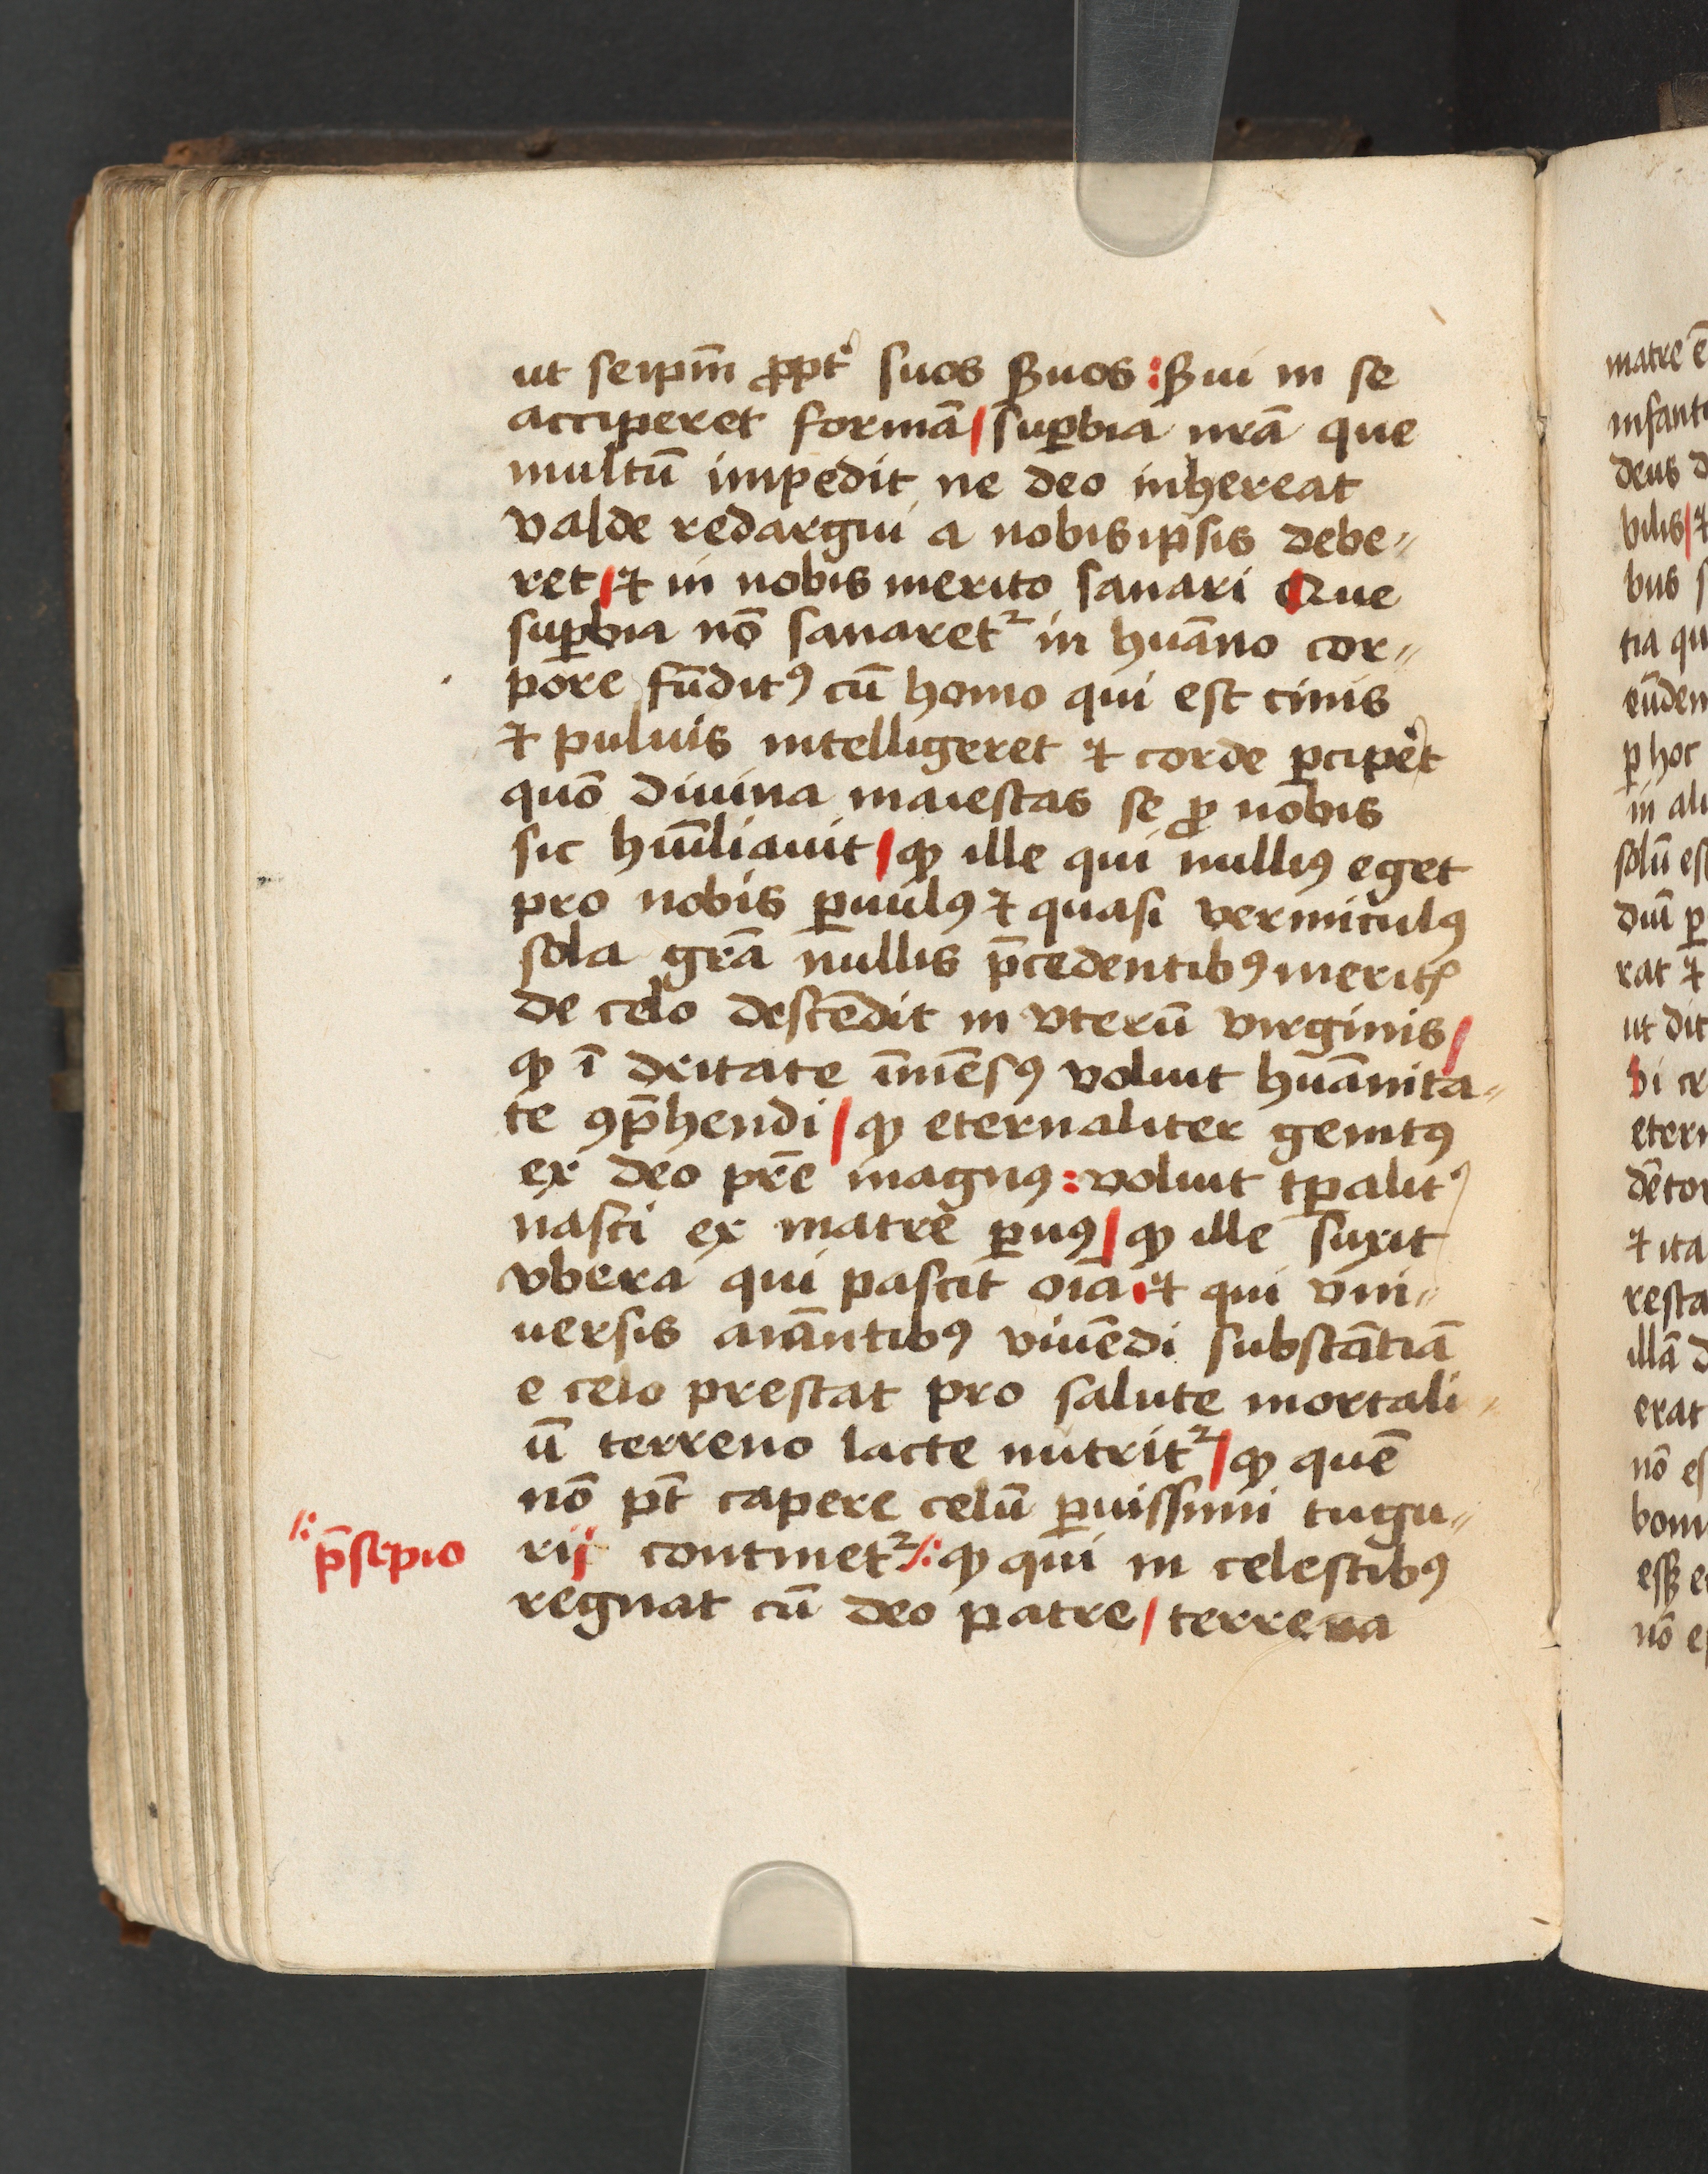 ut seipm̄ ꝓpt᷑ suos ẜuos : ẜui in se
acciperet formā / suꝑbia nr̄a que
multū impedit ne deo inhereat
valde redargui a nobisip̄sis debe〃
ret / ⁊ in nobis merito sanari Que
suꝑbia nō sanaretᷣ in huāno cor〃
pore fūditꝰ cū homo qui est cinis
⁊ puluis intelligeret ⁊ corde ꝑcip̓et
quō diuina maiestas se ꝓ nobis
sic hūiliauit / ꝙ ille qui nulliꝰ eget
pro nobis ꝑuulꝰ ⁊ quasi vermiculꝰ
sola gr̄a nullis p̄cedentibꝰ meritꝭ
de celo descēdit in vterū virginis /
ꝙ ī deitate īmēsꝰ voluit huāmita〃
te ꝯp̄hendi / ꝙ eternaliter genitꝰ
ex deo pr̄e magnꝰ : voluit tꝑalit᷑
nasci ex matre ꝑuꝰ / ꝙ ille suxit
vbera qui pascit oīa ⁊ qui vni〃
uersis aīantibꝰ viuēdi substātiā
e celo prestat pro salute mortali〃
ū terreno lacte nutritᷣ / ꝙ quē
nō pt̄ capere celū ꝑuissimi tugu〃
rij continetᷣ /: ꝙ qui in celestibꝰ
/: p̄sepio
regnat cū deo patre / terrena
matre ē
deus d
vilis / ⁊
bus s
tia qu
ꝑ hoc
in ali
solū es
rat ⁊
ut dit
⁊ ita
illā d
erat
nō es